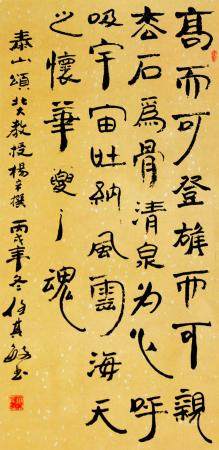 高而可登雄而可親
松石爲骨清泉为心呼
吸宇宙吐納風雲海天
之懷華夏之魂
泰山頌北大教授楊辛撰丙戌年冬